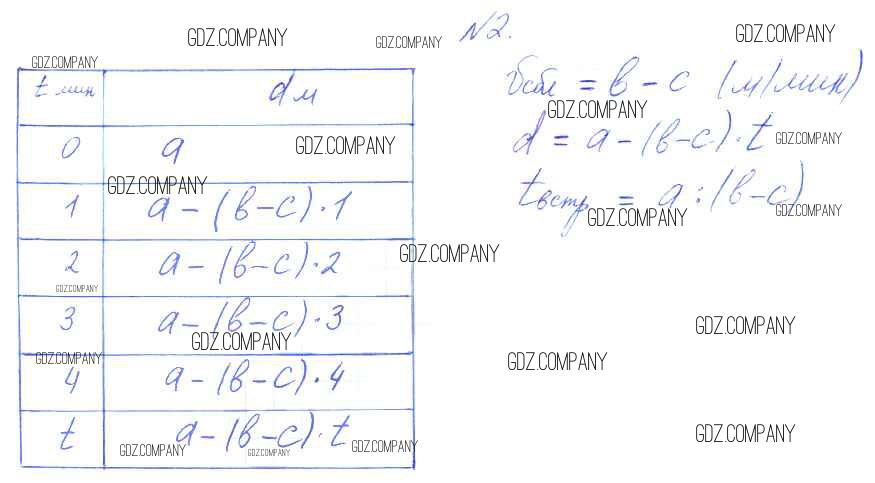 GDZ.COMPANY
GDZ.COMPANY
N2.
GDZ.COMPANY
GDZ.COMPANY
t мин d м
vсбл = в - с (м/мин)
GDZ.COMPANY
0 a
GDZ.COMPANY
d = a - (в - с) · t
GDZ.COMPANY
GDZ.COMPANY
1 a - (в - с) · 1
tвстр = a : (в - с)
GDZ.COMPANY
GDZ.COMPANY
2 a - (в - с) · 2
GDZ.COMPANY
GDZ.COMPANY
3 a - (в - с) · 3
GDZ.COMPANY
GDZ.COMPANY
GDZ.COMPANY
GDZ.COMPANY
4 a - (в - с) · 4
t a - (в - с) · t
GDZ.COMPANY
GDZ.COMPANY
GDZ.COMPANY
GDZ.COMPANY